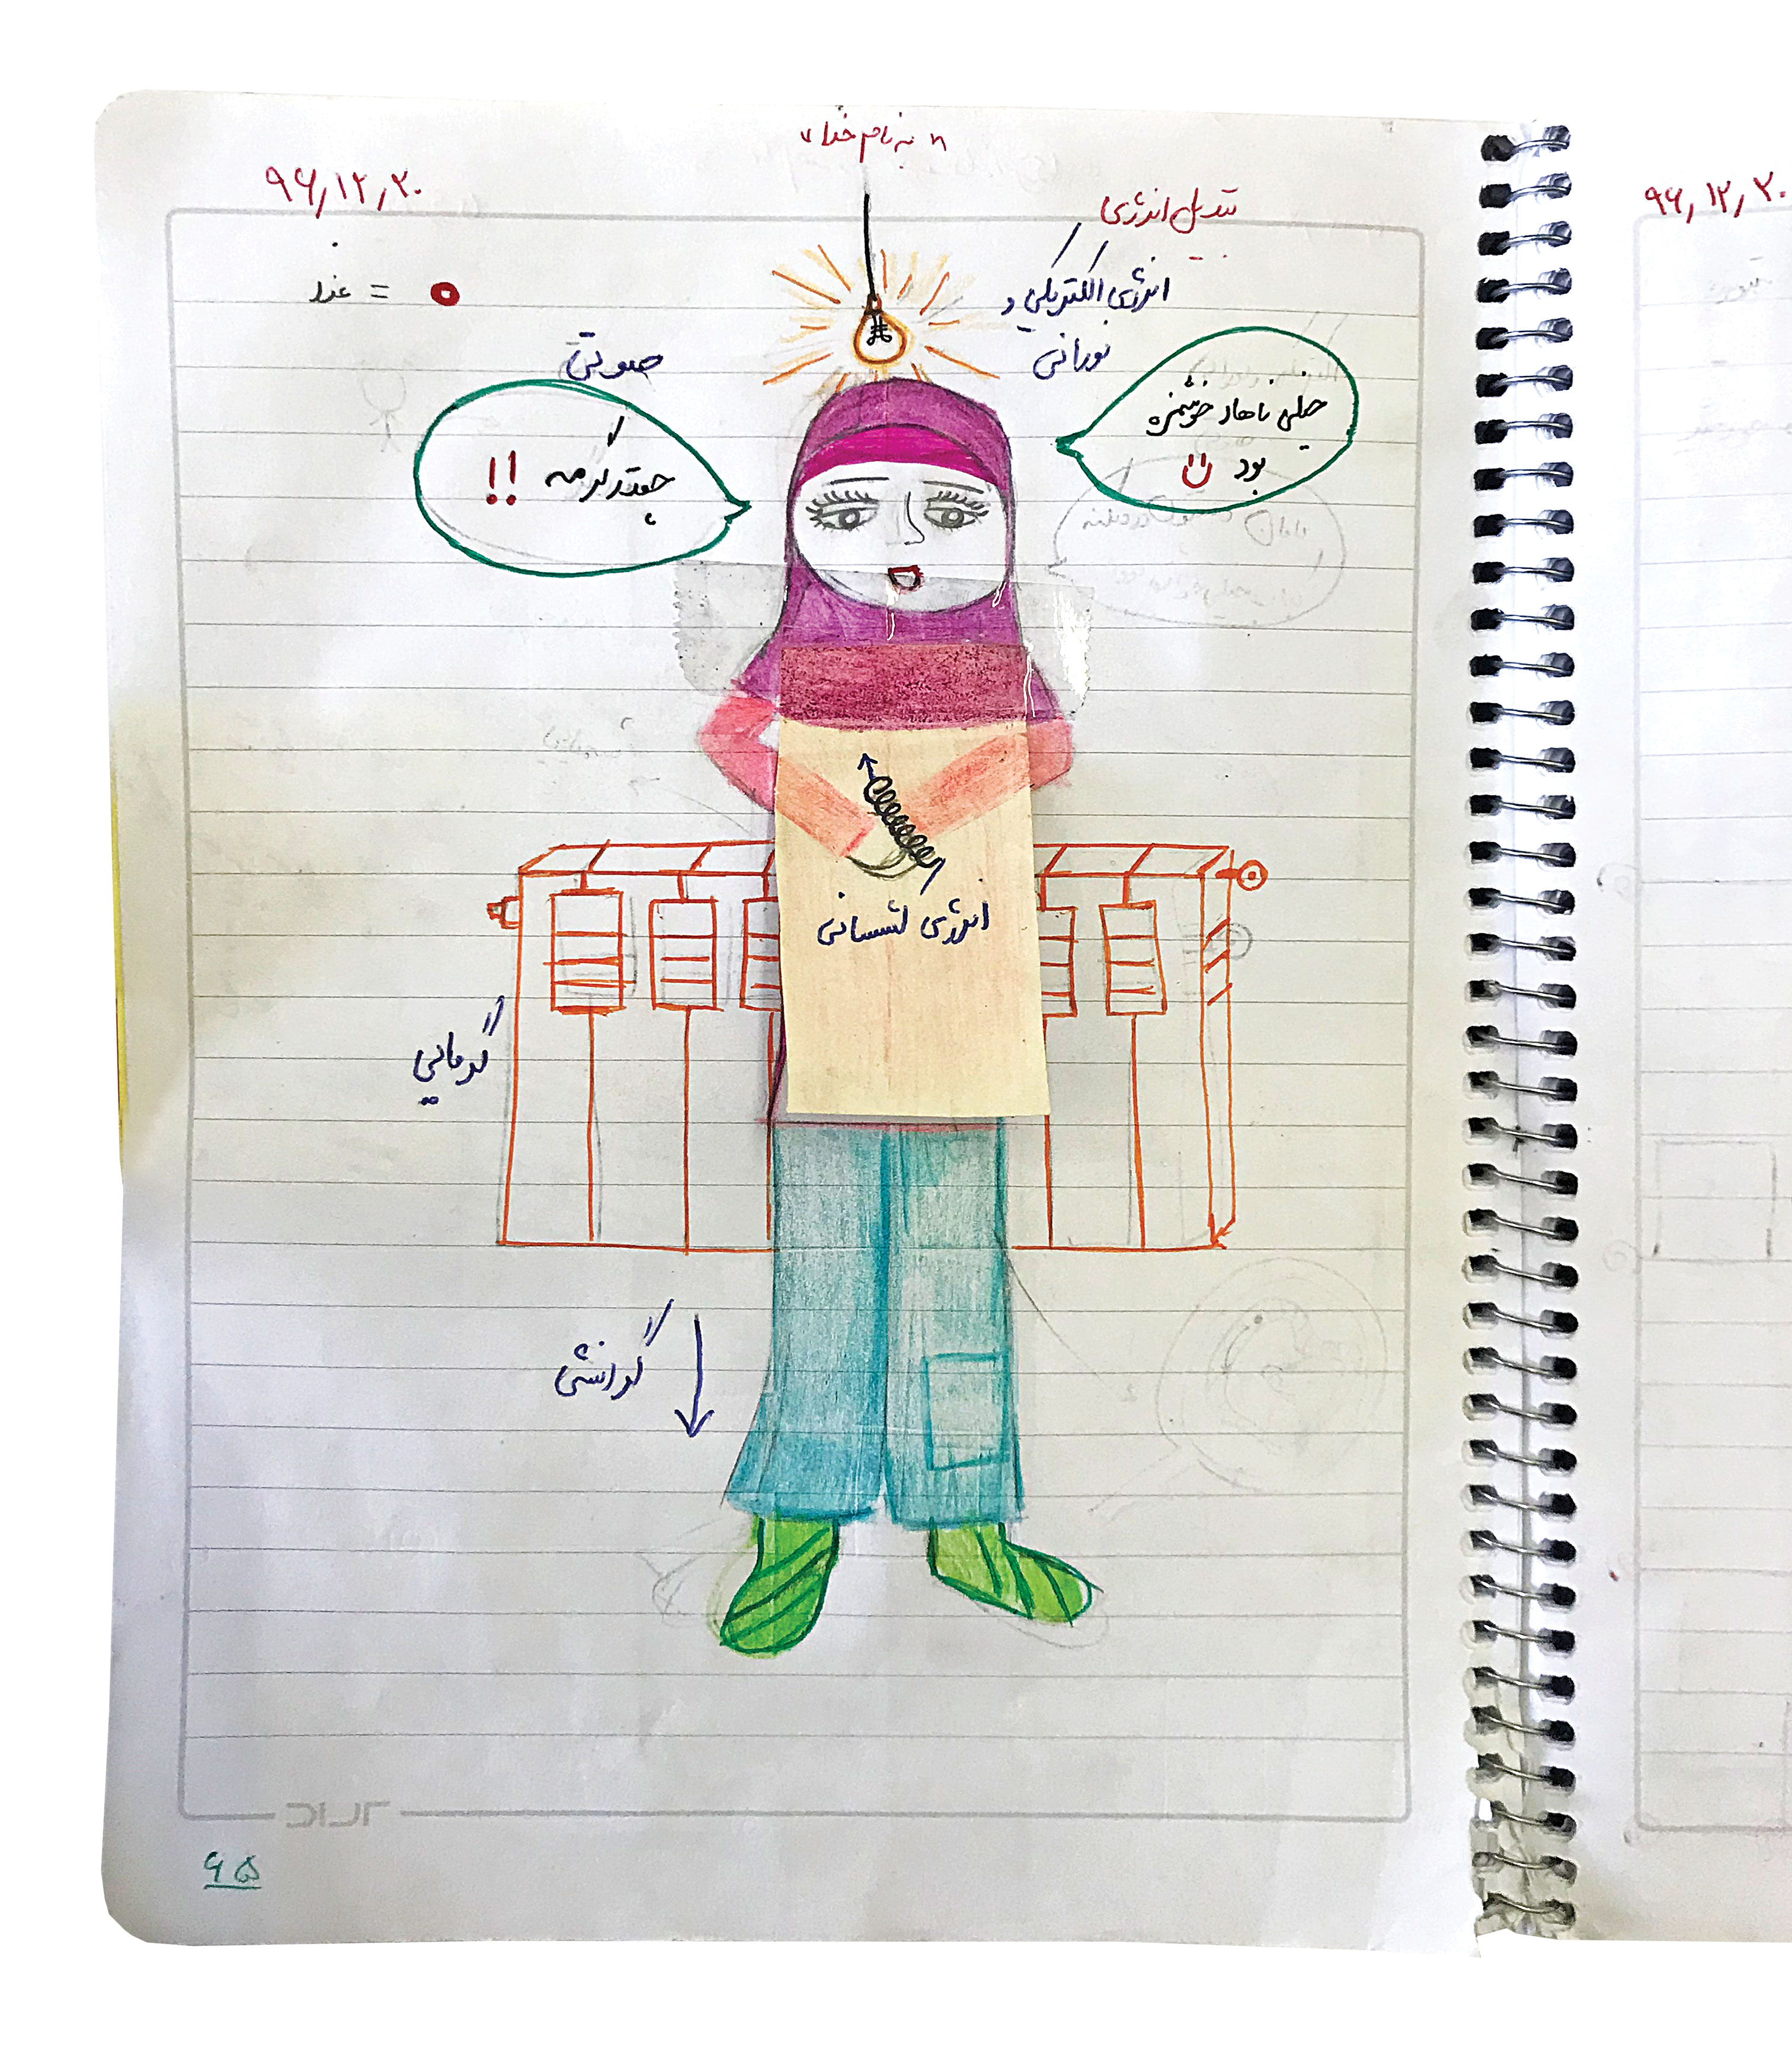 " به نام خدا "
۹۶,۱۲,۲۰
۹۶,۱۲,۲۰
تبدیل انرژی
انرژی الکتریکی و
نورانی
= غذا
صوتی
چقدر گرمه !!
خیلی ناهار خوشمزه
بود
انرژی کشسانی
گرمایی
گرانشی
۶۵